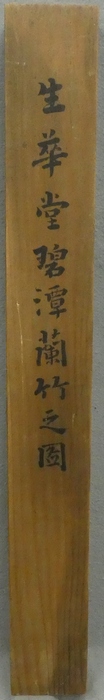 生華堂碧潭蘭竹之圖